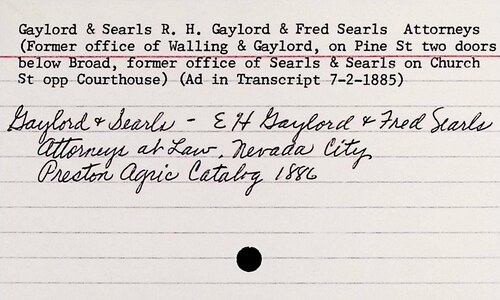 Gaylord & Searls R. H. Gaylord & Fred Searls Attorneys
(Former office of Walling & Gaylord, on Pine St two doors
below Broad, former office of Searls & Searls on Church
St opp Courthouse) (Ad in Transcript 7-2-1885)
Gaylord & Searls - E H Gaylord & Fred Searls
Attorneys at Law, Nevada City
Preston Agric Catalog 1886